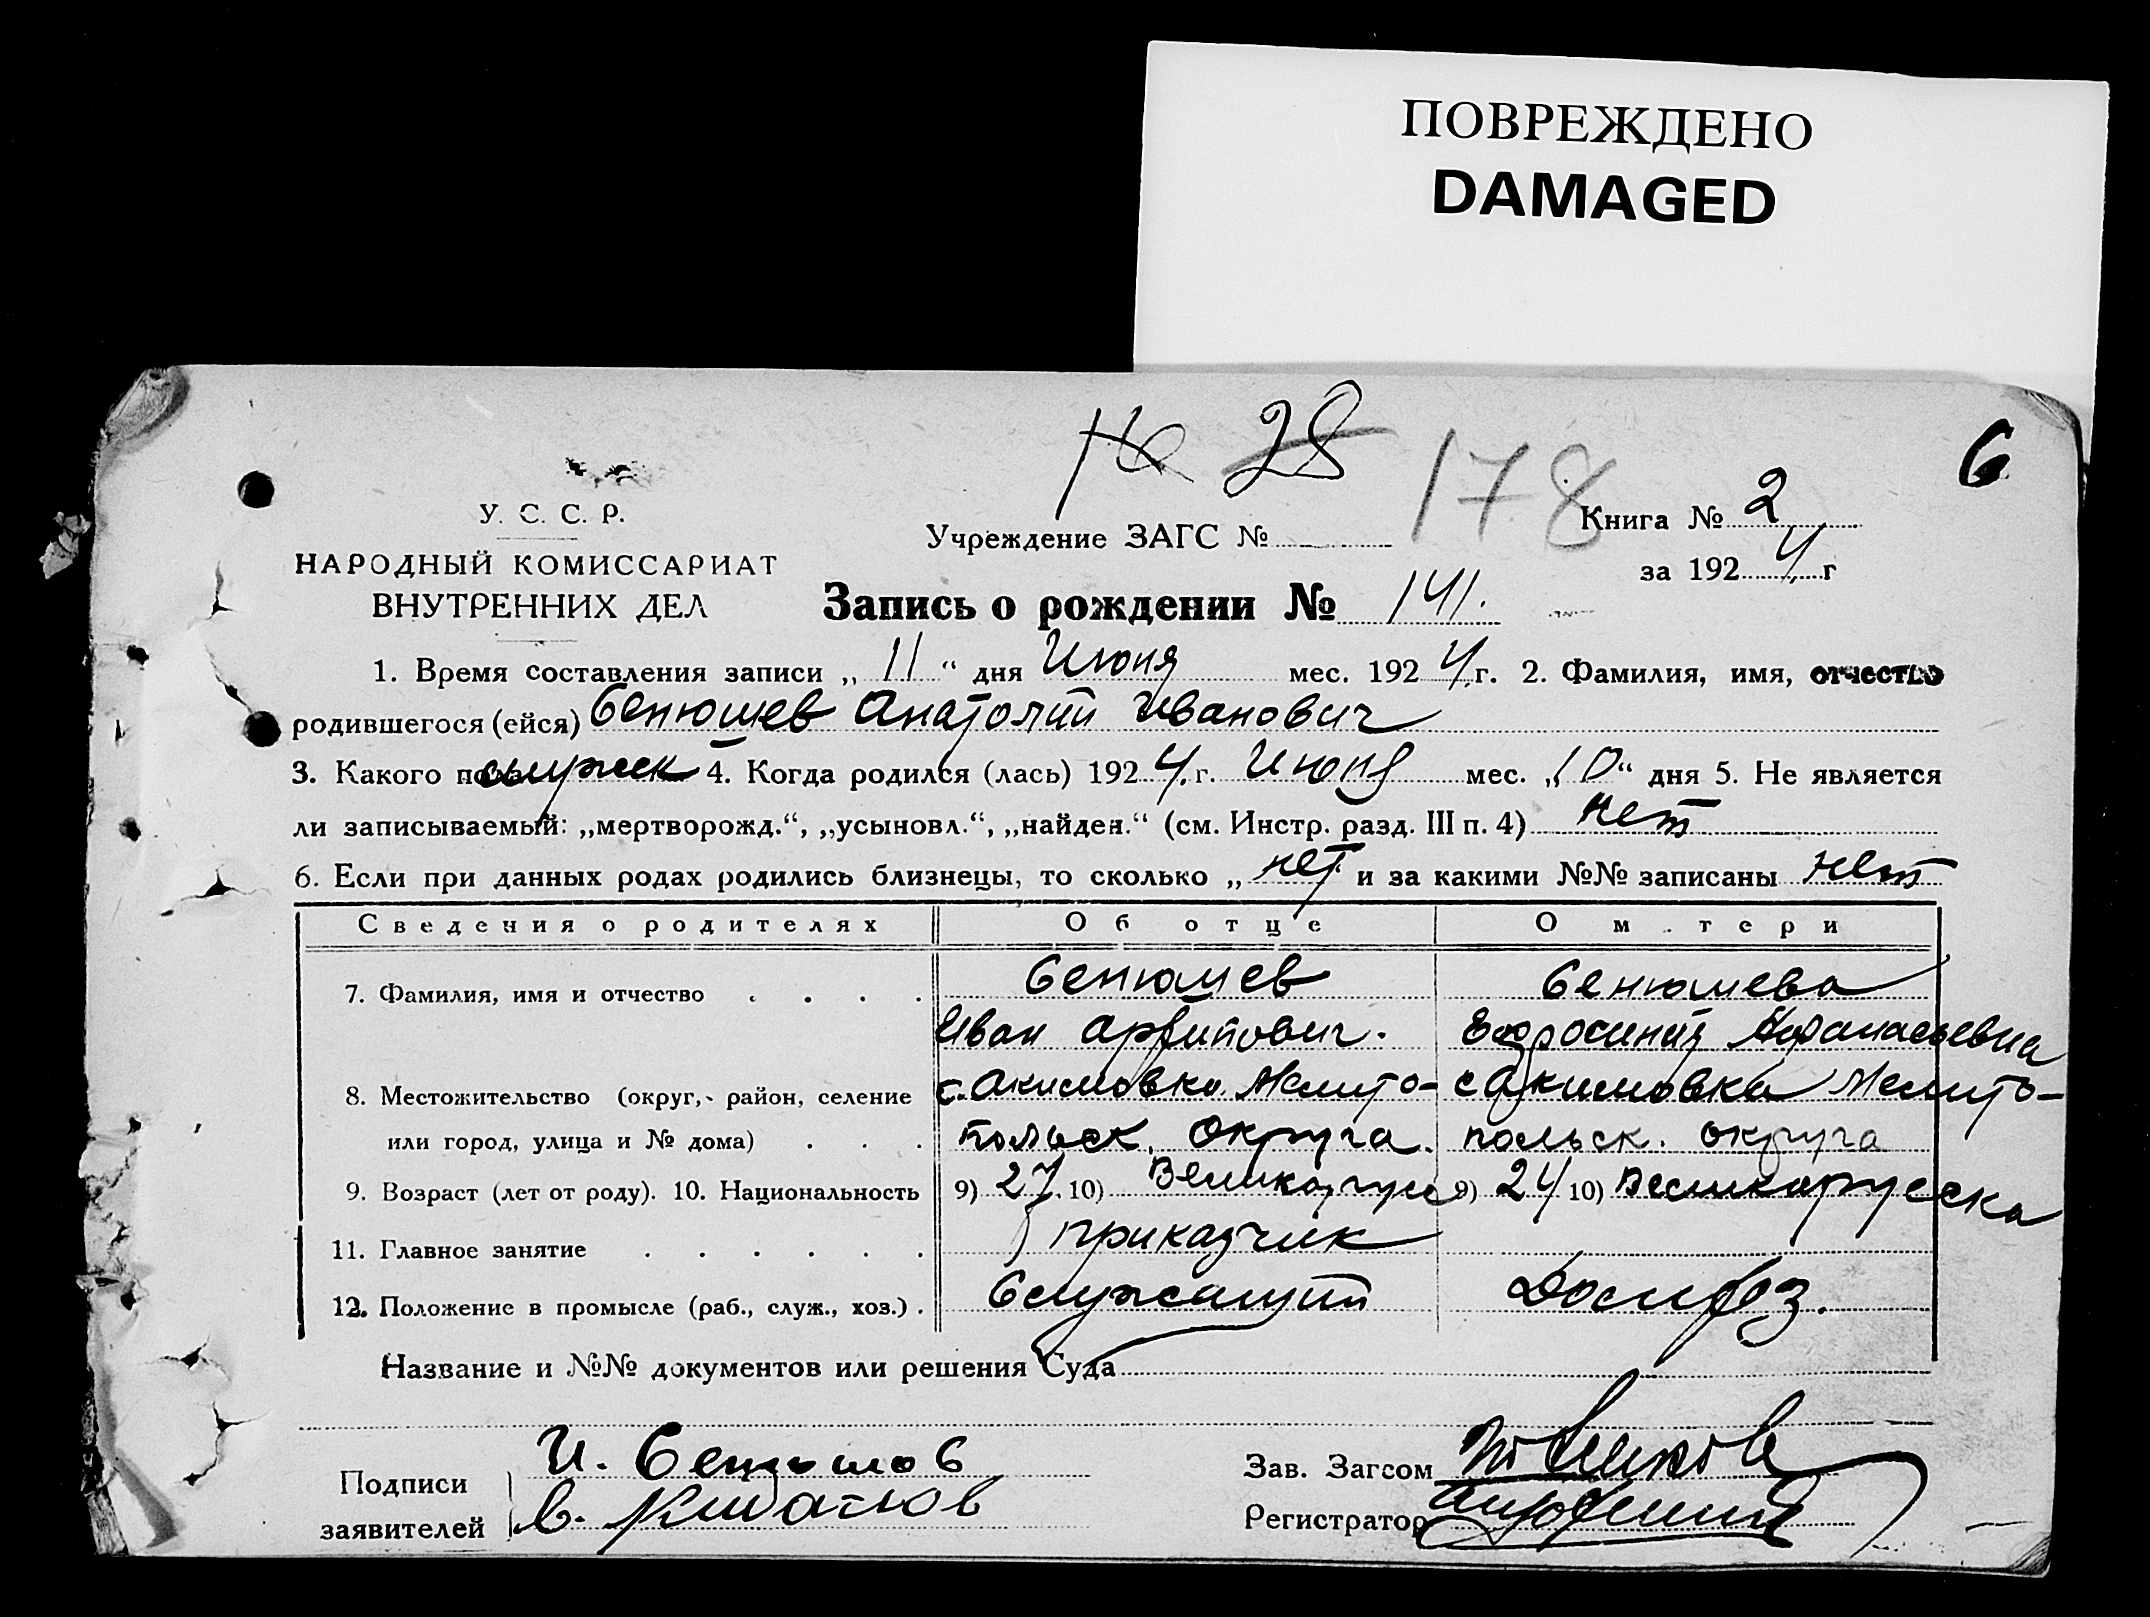 ПОВРЕЖДЕНО
DAMAGED
№ 28
178
6
У. С. С. Р.
НАРОДНЫЙ КОМИССАРИАТ
ВНУТРЕННИХ ДЕЛ
Учреждение ЗАГС №
Книга № 2
за 1924 г
Запись о рождении № 141.
1. Время составления записи „ 11 “ дня Июня мес. 1924 г. 2. Фамилия, имя, отчество
родившегося (ейся) Сенюшев Анатолий Иванович
3. Какого пола мужск 4. Когда родился (лась) 1924 г. Июня мес. „10“ дня 5. Не является
ли записываемый: „мертворожд.“, „усыновл.“, „найден.“ (см. Инстр. разд. III п. 4) нет
6. Если при данных родах родились близнецы, то сколько „ нет и за какими №№ записаны нет
Сведения о родителях Об отце О м.тери
7. Фамилия, имя и отчество . . . . Сенюшев Сенюшева
Иван Архипович. Ефросиния Афанасьевна
8. Местожительство (округ, район, селение с. Акимовка Мелито- с Акимовка Мелито-
или город, улица и № дома) . . . польск. округа. польск. округа
9. Возраст (лет от роду). 10. Национальность 9) 27. 10) Великорусс 9) 24 10) Великорусска
11. Главное занятие . . . . . . приказчик
12. Положение в промысле (раб., служ., хоз.) . Служащий Домхоз.
Название и №№ документов или решения Суда
Подписи
заявителей
И. Сенюшов
В.
Зав. Загсом
Регистратор